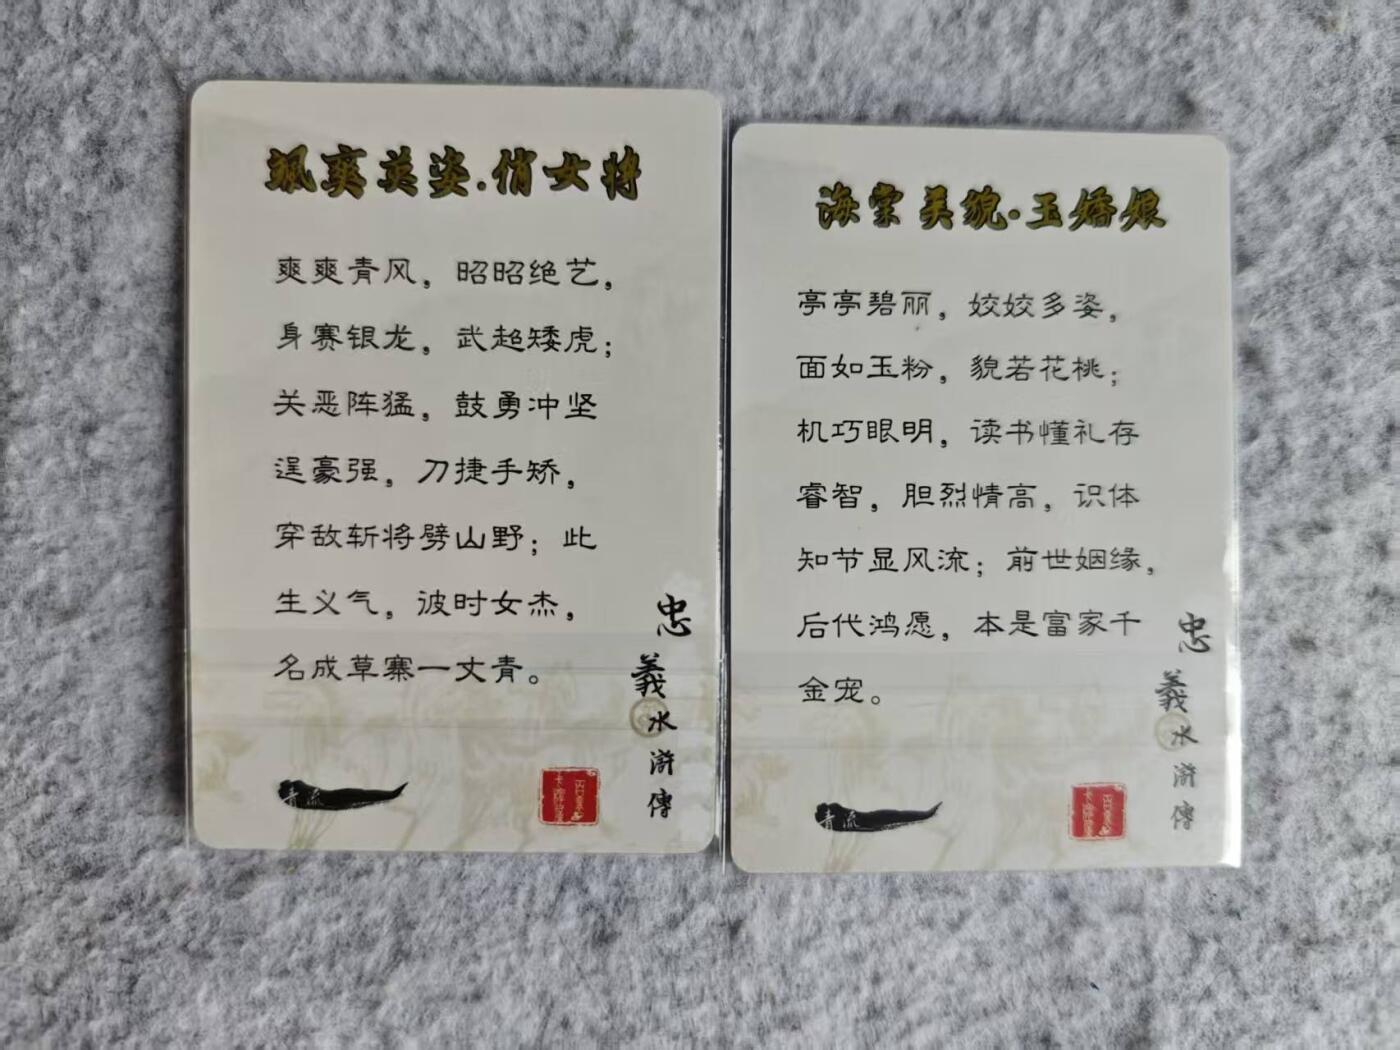 飒爽英姿·俏女将
爽爽青风，昭昭绝艺，
身赛银龙，武超矮虎；
关恶阵猛，鼓勇冲坚
逞豪强，刀捷手矫，
穿敌斩将劈山野；此
生义气，彼时女杰，
名成草寨一丈青。
忠義水滸傳
青流
海棠美貌·玉娇娘
亭亭碧丽，姣姣多姿，
面如玉粉，貌若花桃；
机巧眼明，读书懂礼存
睿智，胆烈情高，识体
知节显风流；前世姻缘，
后代鸿愿，本是富家千
金宠。
忠義水滸傳
青流